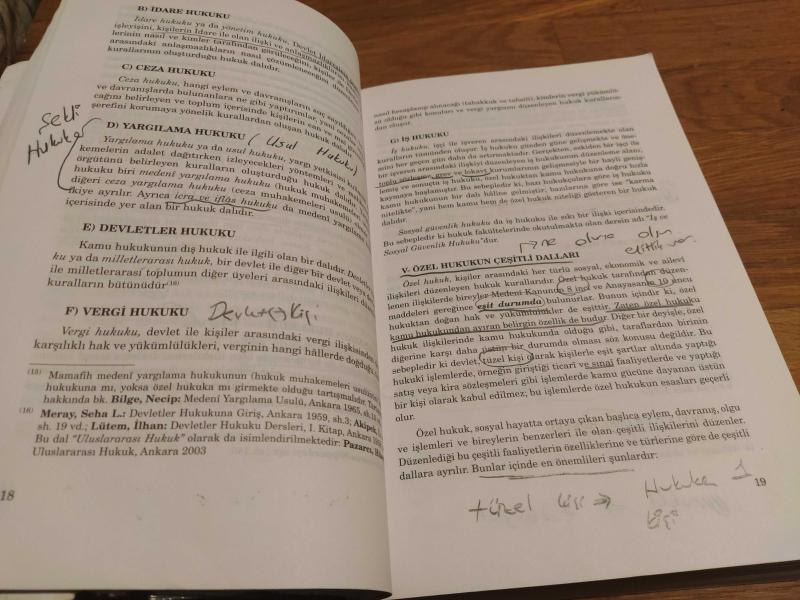 B) İDARE HUKUKU
İdare hukuku ya da yönetim hukuku, Devlet
işleyişini, kişilerin İdare ile olan ilişki ve anlaşmazlık
lerinin nasıl ve kimler tarafından görüleceğini, kişiler
arasındaki anlaşmazlıkların nasıl çözümleneceğini
kurallarının oluşturduğu hukuk dalıdır.
C) CEZA HUKUKU
Ceza hukuku, hangi eylem ve davranışların suç
ve davranışlarda bulunanlara ne gibi yaptırımlar
cağını belirleyen ve toplum içerisinde kişilerin can ve
şerefini korumaya yönelik kurallardan oluşan hukuk
Şekli
Hukuku
D) YARGILAMA HUKUKU (Usul Hukuku)
Yargılama hukuku ya da usul hukuku, yargı yetkisini
kemelerin adalet dağıtırken izleyecekleri yöntemleri
örgütünü belirleyen kuralların oluşturduğu hukuk
hukuku biri medenî yargılama hukuku (hukuk
diğeri ceza yargılama hukuku (ceza muhakemeleri usulü)
ikiye ayrılır. Ayrıca icra ve iflâs hukuku da medenî
içerisinde yer alan bir hukuk dalıdır.
E) DEVLETLER HUKUKU
Kamu hukukunun dış hukuk ile ilgili olan bir dalıdır.
ku ya da milletlerarası hukuk, bir devlet ile diğer bir devlet veya
ile milletlerarası toplumun diğer üyeleri arasındaki ilişkileri
kuralların bütünüdür(16)
F) VERGİ HUKUKU Devlet Kişi
Vergi hukuku, devlet ile kişiler arasındaki vergi ilişkisinden
karşılıklı hak ve yükümlülükleri, verginin hangi hâllerde doğduğu,
(15) Mamafih medenî yargılama hukukunun (hukuk muhakemeleri
hukukuna mı, yoksa özel hukuka mı girmekte olduğu tartışmalıdır.
hakkında bk. Bilge, Necip: Medenî Yargılama Usulü, Ankara 1965,
(16) Meray, Seha L.: Devletler Hukukuna Giriş, Ankara 1959, sh.3;
sh. 19 vd.; Lütem, İlhan: Devletler Hukuku Dersleri, I. Kitap, Ankara
Bu dal "Uluslararası Hukuk" olarak da isimlendirilmektedir:
Uluslararası Hukuk, Ankara 2003
18
nasıl hesaplanıp alınacağı (tahakkuk ve tahsili), kimlerin vergi
sı olduğu gibi konuları ve vergi yargısını düzenleyen hukuk kuralların-
dan oluşur.
G) İŞ HUKUKU
İş hukuku, işçi ile işveren arasındaki ilişkileri düzenlemekte olan
kuralların tümünden oluşur. İş hukuku günden güne gelişmekte ve öne-
mini her geçen gün daha da artırmaktadır. Gerçekten, eskiden bir işçi ile
bir işveren arasındaki ilişkiyi düzenleyen iş hukukunun düzenleme alanı,
toplu sözleşme, grev ve lokavt kurumlarının gelişmesiyle bir hayli geniş-
lemiş ve sonuçta iş hukuku, özel hukuktan kamu hukukuna doğru hızla
kaymaya başlamıştır. Bu sebepledir ki, bazı hukukçulara göre iş hukuku
kamu hukukunun bir dalı hâline gelmiştir; bazılarına göre ise "karma
nitelikte", yani hem kamu hem de özel hukuk niteliği gösteren bir hukuk
dalıdır.
Sosyal güvenlik hukuku da iş hukuku ile sıkı bir ilişki içerisindedir.
Bu sebepledir ki hukuk fakültelerinde okutulmakta olan dersin adı "İş ve
Sosyal Güvenlik Hukuku"dur.
V. ÖZEL HUKUKUN ÇEŞİTLİ DALLARI
Özel hukuk, kişiler arasındaki her türlü sosyal, ekonomik ve ailevî
ilişkileri düzenleyen hukuk kurallarıdır. Özel hukuk tarafından düzen-
lenen ilişkilerde bireyler Medenî Kanunun 8 inci ve Anayasanın 10 uncu
maddeleri gereğince eşit durumda bulunurlar. Bunun içindir ki, özel
hukuktan doğan hak ve yükümlülükler de eşittir. Zaten özel hukuku
kamu hukukundan ayıran belirgin özellik de budur. Diğer bir deyişle, özel
hukuk ilişkilerinde kamu hukukunda olduğu gibi, taraflardan birinin
diğerine karşı daha üstün bir durumda olması söz konusu değildir. Bu
sebepledir ki devlet, tüzel kişi olarak kişilerle eşit şartlar altında yaptığı
hukuki işlemlerde, örneğin giriştiği ticari ve sınai faaliyetlerde ve yaptığı
satış veya kira sözleşmeleri gibi işlemlerde kamu gücüne dayanan üstün
bir kişi olarak kabul edilmez; bu işlemlerde özel hukukun esasları geçerli
olur.
Özel hukuk, sosyal hayatta ortaya çıkan başlıca eylem, davranış, olgu
ve işlemleri ve bireylerin benzerleri ile olan çeşitli ilişkilerini düzenler.
Düzenlediği bu çeşitli faaliyetlerin özelliklerine ve türlerine göre de çeşitli
dallara ayrılır. Bunlar içinde en önemlileri şunlardır:
tüzel kişi ⇒ Hukuken
kişi
19